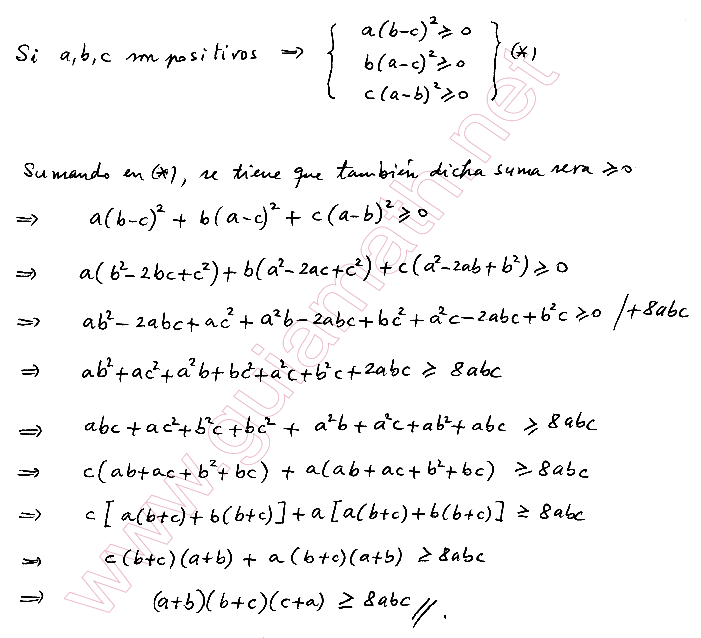 a(b-c)² ≥ 0
Si a, b, c son positivos ⇒ { b(a-c)² ≥ 0 } (*)
c(a-b)² ≥ 0
Sumando en (*), se tiene que también dicha suma sera ≥ 0
⇒ a(b-c)² + b(a-c)² + c(a-b)² ≥ 0
⇒ a(b²-2bc+c²) + b(a²-2ac+c²) + c(a²-2ab+b²) ≥ 0
⇒ ab²-2abc+ac²+a²b-2abc+bc²+a²c-2abc+b²c ≥ 0 /+8abc
⇒ ab²+ac²+a²b+bc²+a²c+b²c+2abc ≥ 8abc
⇒ abc+ac²+b²c+bc² + a²b+a²c+ab²+abc ≥ 8abc
⇒ c(ab+ac+b²+bc) + a(ab+ac+b²+bc) ≥ 8abc
⇒ c[a(b+c)+b(b+c)] + a[a(b+c)+b(b+c)] ≥ 8abc
⇒ c(b+c)(a+b) + a(b+c)(a+b) ≥ 8abc
⇒ (a+b)(b+c)(c+a) ≥ 8abc //.
www.guiamath.net